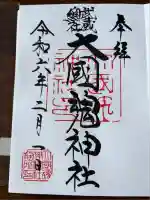 奉拝
武蔵
総社
大國魂神社
令和六年二月一日